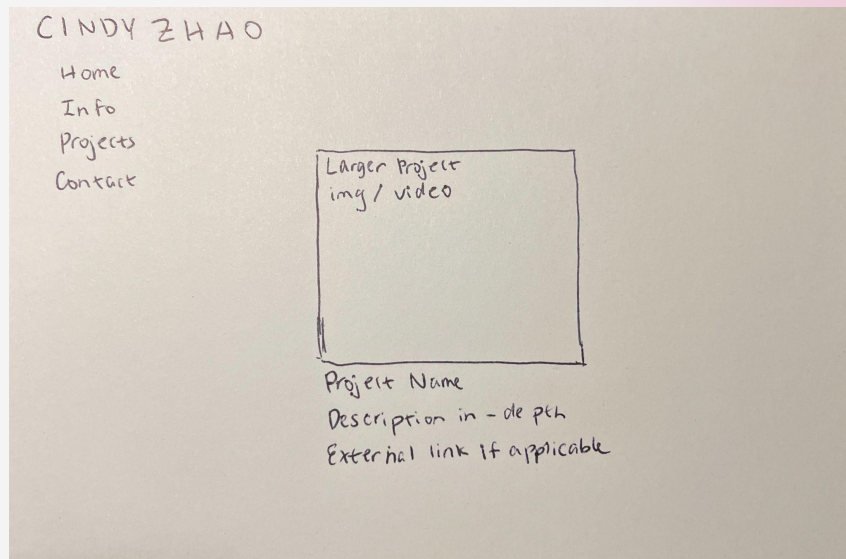 CINDY ZHAO
Home
Info
Projects
Contact
Larger Project
img / video
Project Name
Description in-depth
External link if applicable